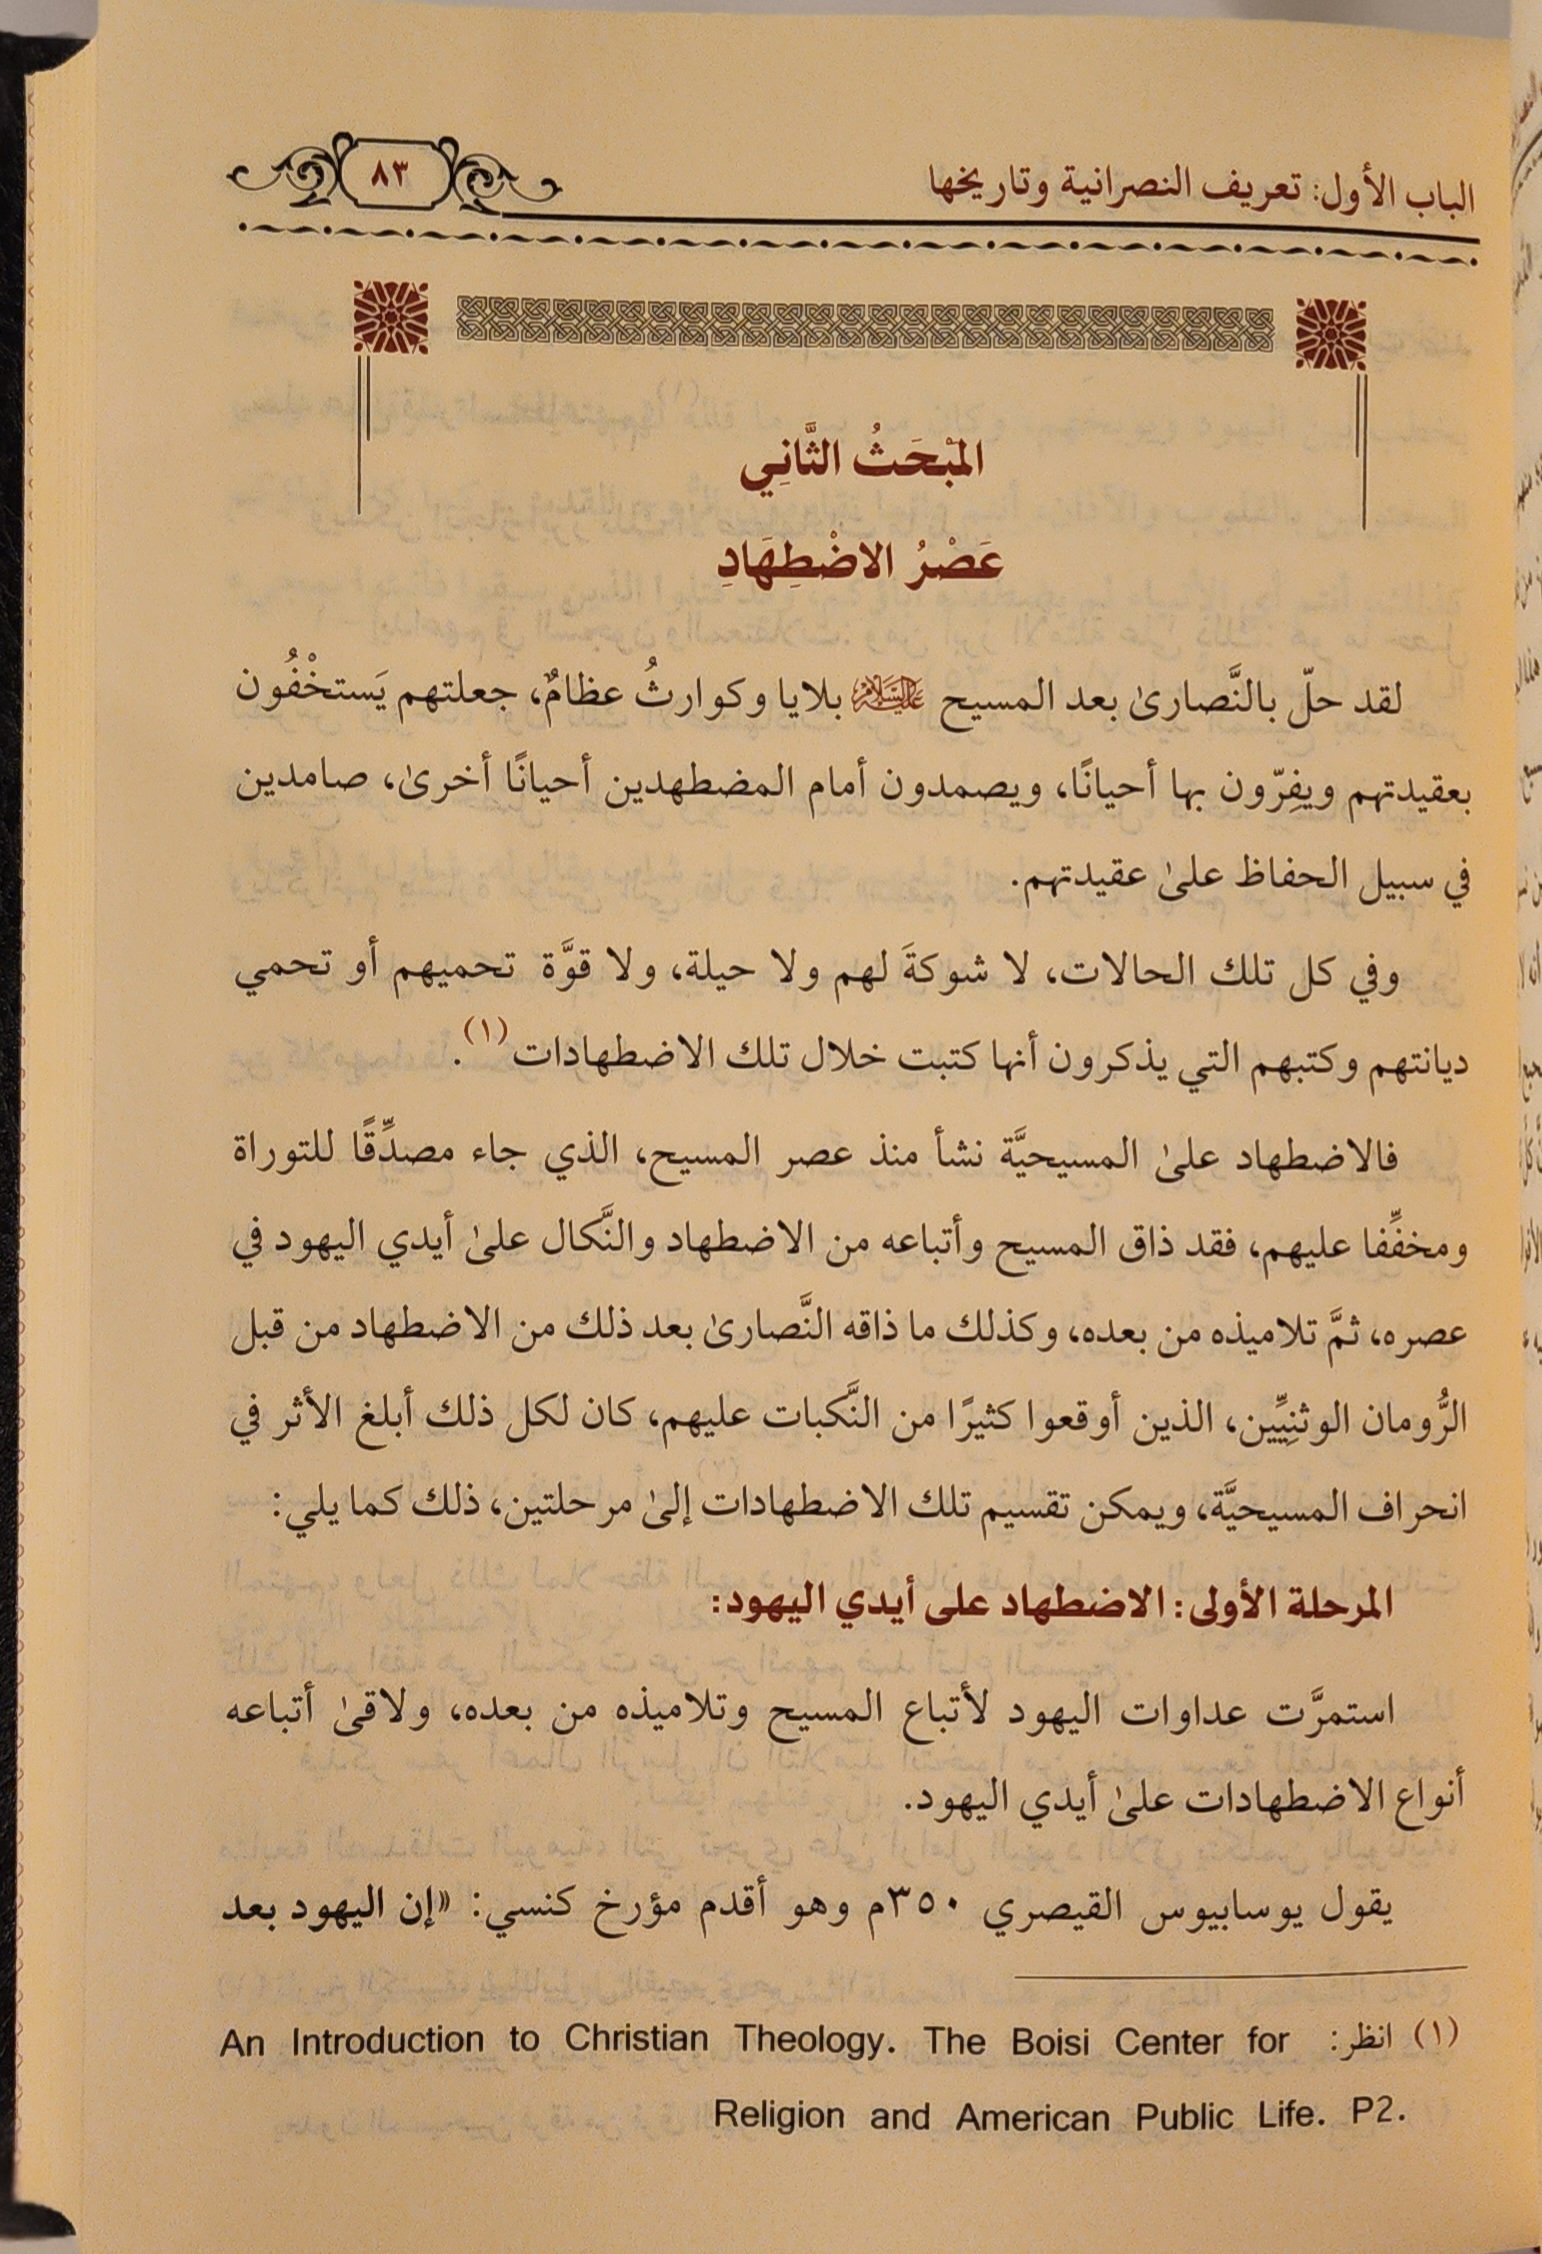 الباب الأول: تعريف النصرانية وتاريخها
٨٣
المَبْحَثُ الثَّانِي
عَصْرُ الاضْطِهَادِ
لقد حلّ بالنَّصارىٰ بعد المسيح عَلَيْهِ السَّلَام بلايا وكوارثُ عظامٌ، جعلتهم يَستخْفُون
بعقيدتهم ويفِرّون بها أحيانًا، ويصمدون أمام المضطهدين أحيانًا أخرىٰ، صامدين
في سبيل الحفاظ علىٰ عقيدتهم.
وفي كل تلك الحالات، لا شوكةَ لهم ولا حيلة، ولا قوَّة تحميهم أو تحمي
ديانتهم وكتبهم التي يذكرون أنها كتبت خلال تلك الاضطهادات(١).
فالاضطهاد علىٰ المسيحيَّة نشأ منذ عصر المسيح، الذي جاء مصدِّقًا للتوراة
ومخفِّفا عليهم، فقد ذاق المسيح وأتباعه من الاضطهاد والنَّكال علىٰ أيدي اليهود في
عصره، ثمَّ تلاميذه من بعده، وكذلك ما ذاقه النَّصارىٰ بعد ذلك من الاضطهاد من قبل
الرُّومان الوثنِيِّين، الذين أوقعوا كثيرًا من النَّكبات عليهم، كان لكل ذلك أبلغ الأثر في
انحراف المسيحيَّة، ويمكن تقسيم تلك الاضطهادات إلىٰ مرحلتين، ذلك كما يلي:
المرحلة الأولى: الاضطهاد على أيدي اليهود:
استمرَّت عداوات اليهود لأتباع المسيح وتلاميذه من بعده، ولاقىٰ أتباعه
أنواع الاضطهادات علىٰ أيدي اليهود.
يقول يوسابيوس القيصري ٣٥٠م وهو أقدم مؤرخ كنسي: «إن اليهود بعد
(١) انظر: An Introduction to Christian Theology. The Boisi Center for
Religion and American Public Life. P2.